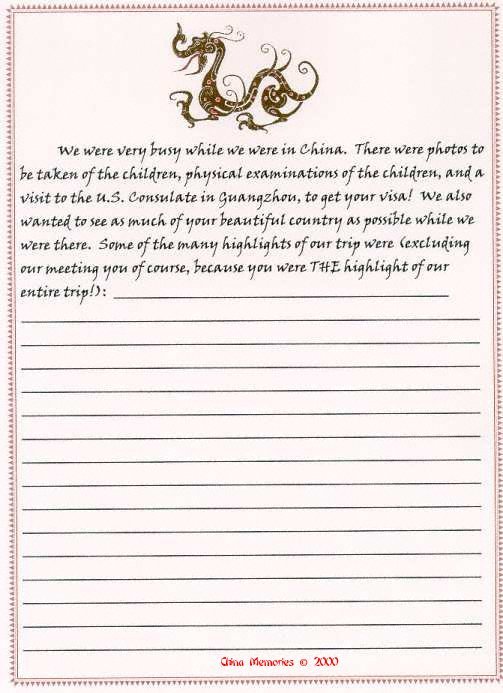 We were very busy while we were in China. There were photos to
be taken of the children, physical examinations of the children, and a
visit to the U.S. Consulate in Guangzhou, to get your visa! We also
wanted to see as much of your beautiful country as possible while we
were there. Some of the many highlights of our trip were (excluding
our meeting you of course, because you were THE highlight of our
entire trip!):
China Memories © 2000